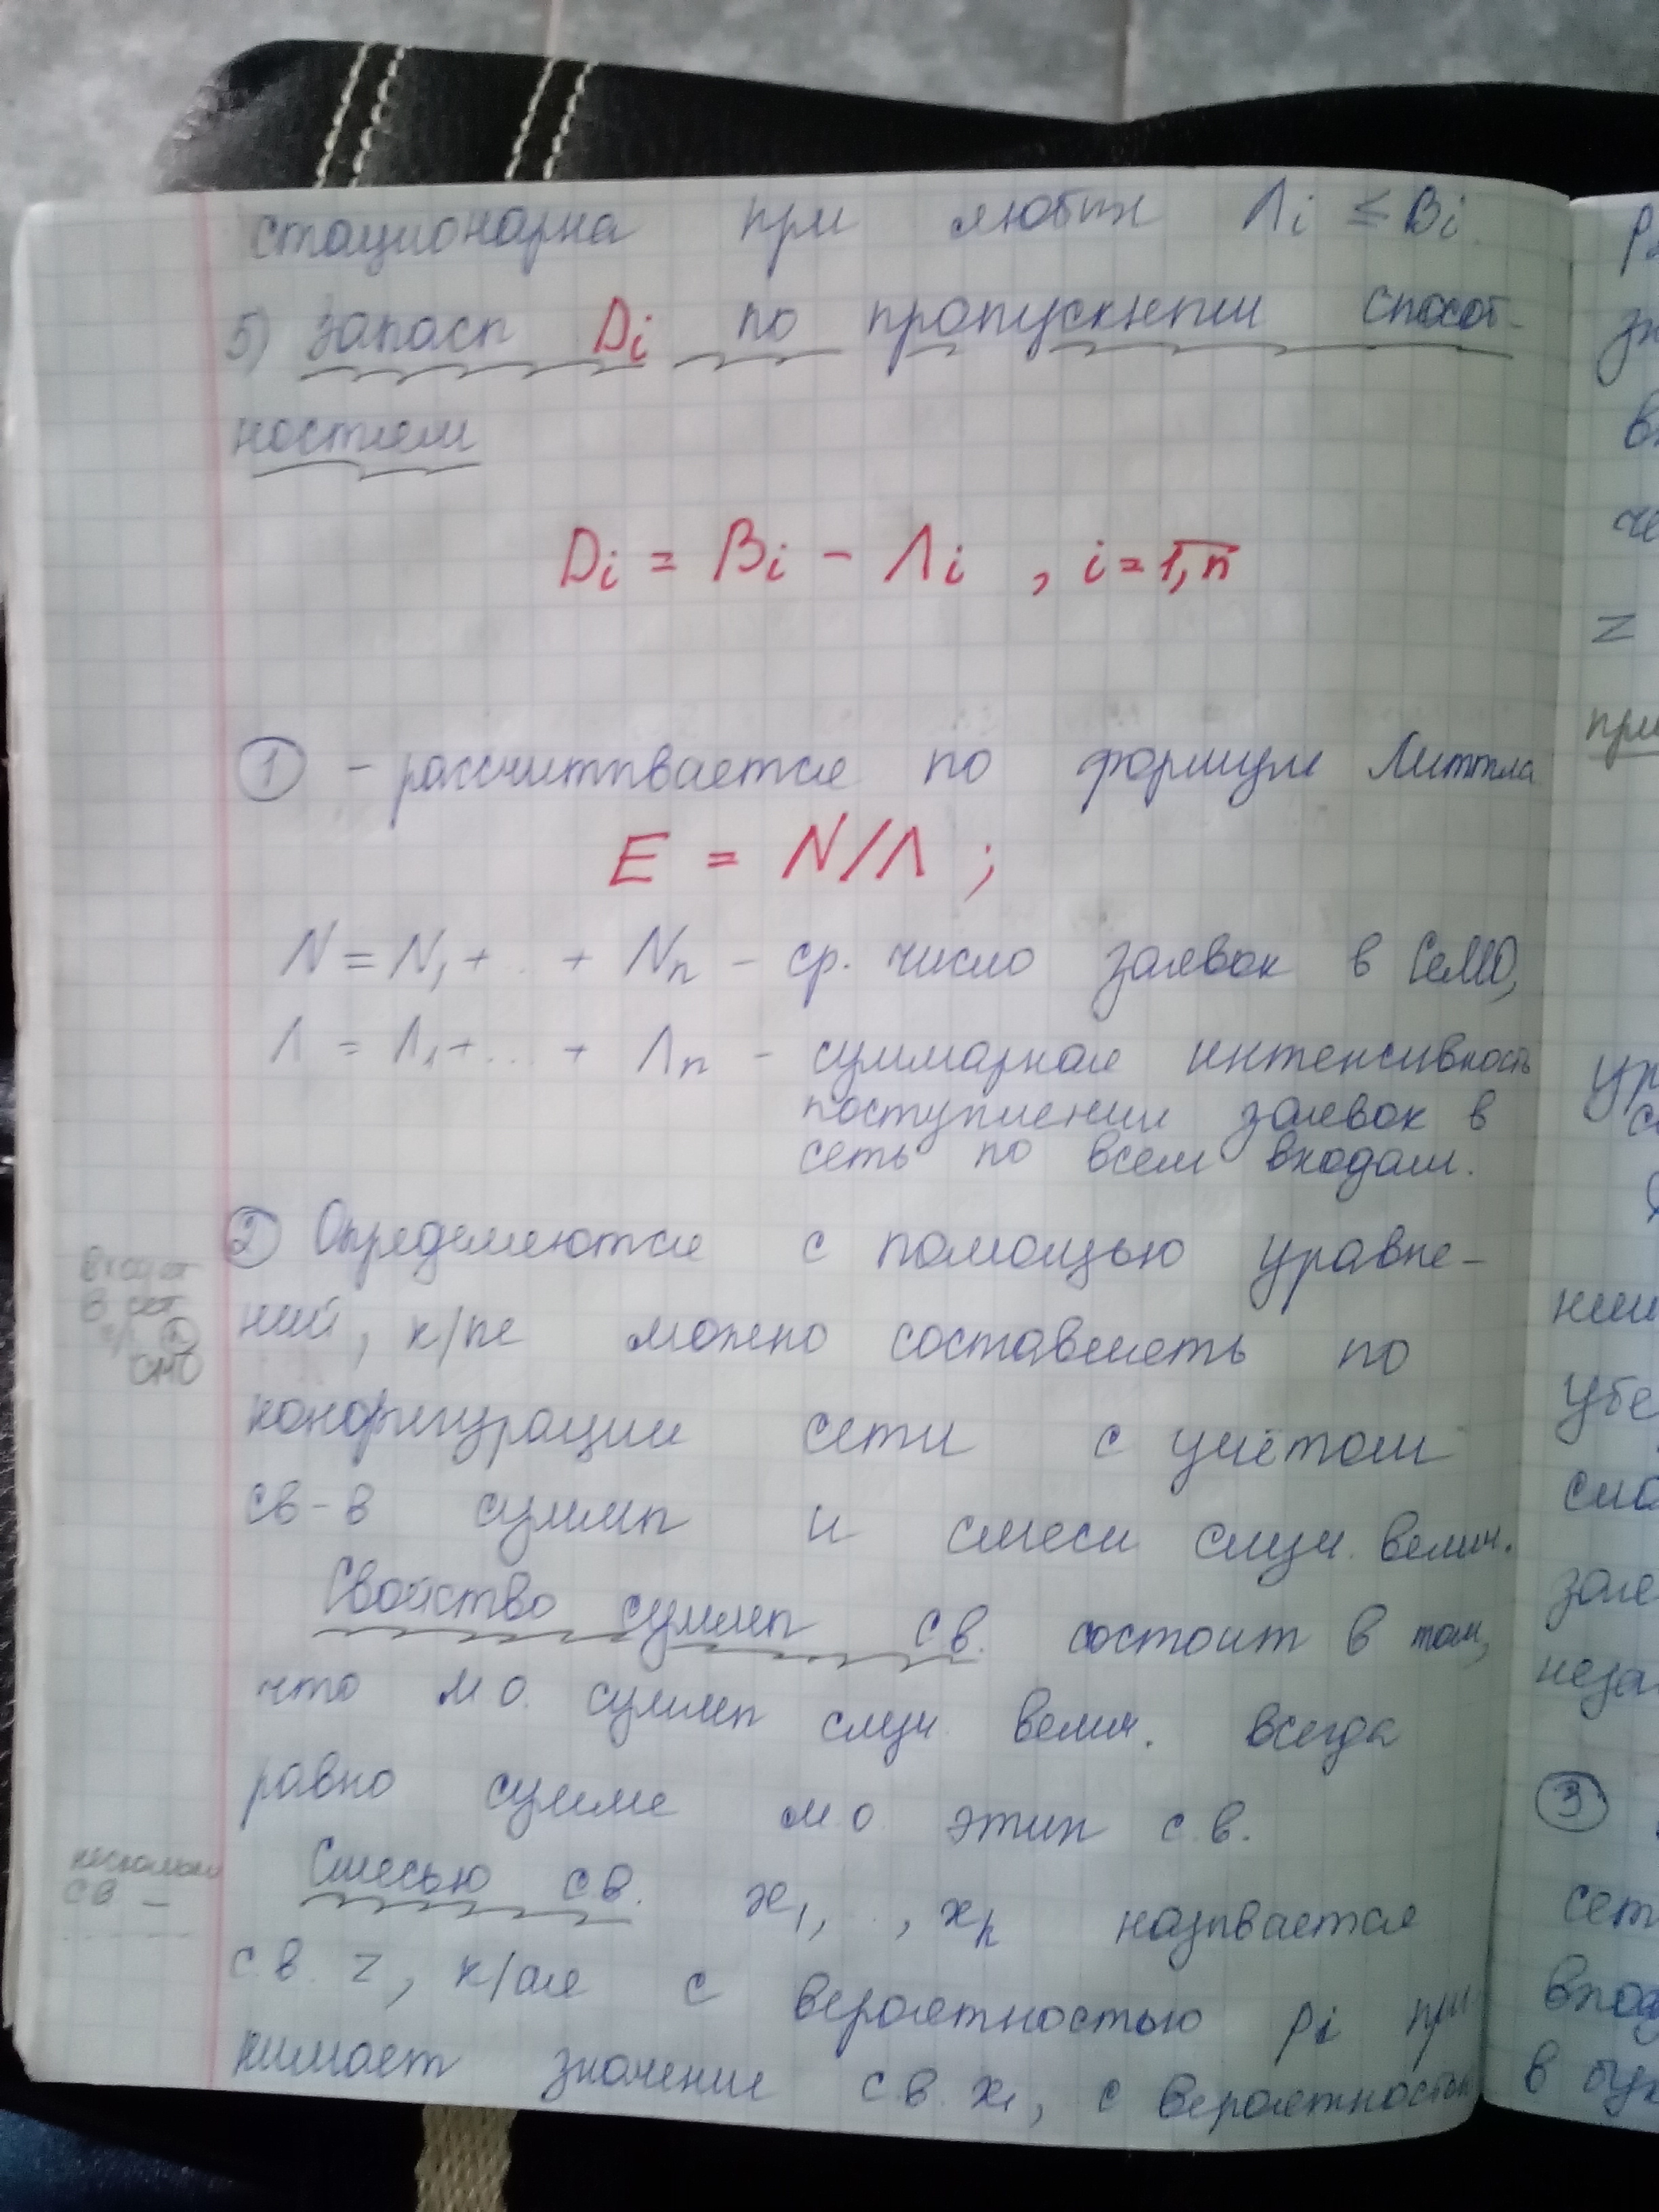 стационарна при любых Λi ≤ Bi.
5) запасы Di по пропускным способ-
ностям
Di = Bi - Λi , i = 1,n
① - рассчитывается по формуле Литтла
E = N/Λ ;
N = N1 + ... + Nn - ср. число заявок в СеМО,
Λ = Λ1 + ... + Λn - суммарная интенсивность
поступления заявок в
сеть по всем входам.
② Определяются с помощью уравне-
ний, к/ые можно составлять по
конфигурации сети с учётом
св-в суммы и смеси случ. велич.
Свойство суммы с.в. состоит в том,
что м.о. суммы случ. велич. всегда
равно сумме м.о. этих с.в.
Смесью с.в. x1, ..., xk называется
с.в. z, к/ая с вероятностью pi при-
нимает значение с.в. x1, с вероятностью
в сет
СМО
св -
z
③